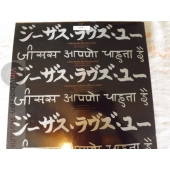 ジーザス・ラヴズ・ユー
जीसस आपणो चाहुता
ジーザス・ラヴズ・ユー
जीसस आपणो चाहुता
ジーザス・ラヴズ・ユー
जीसस आपणो चाहुता